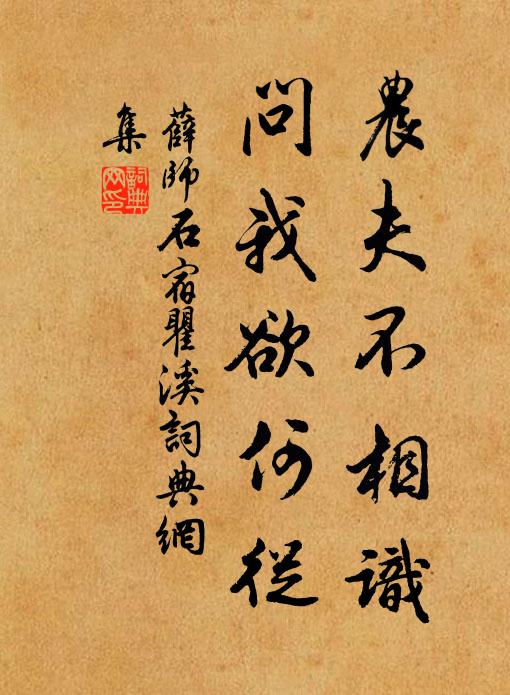 農夫不相識
問我欲何從
薛師石宿瞿溪詞典網
集
詞典網印